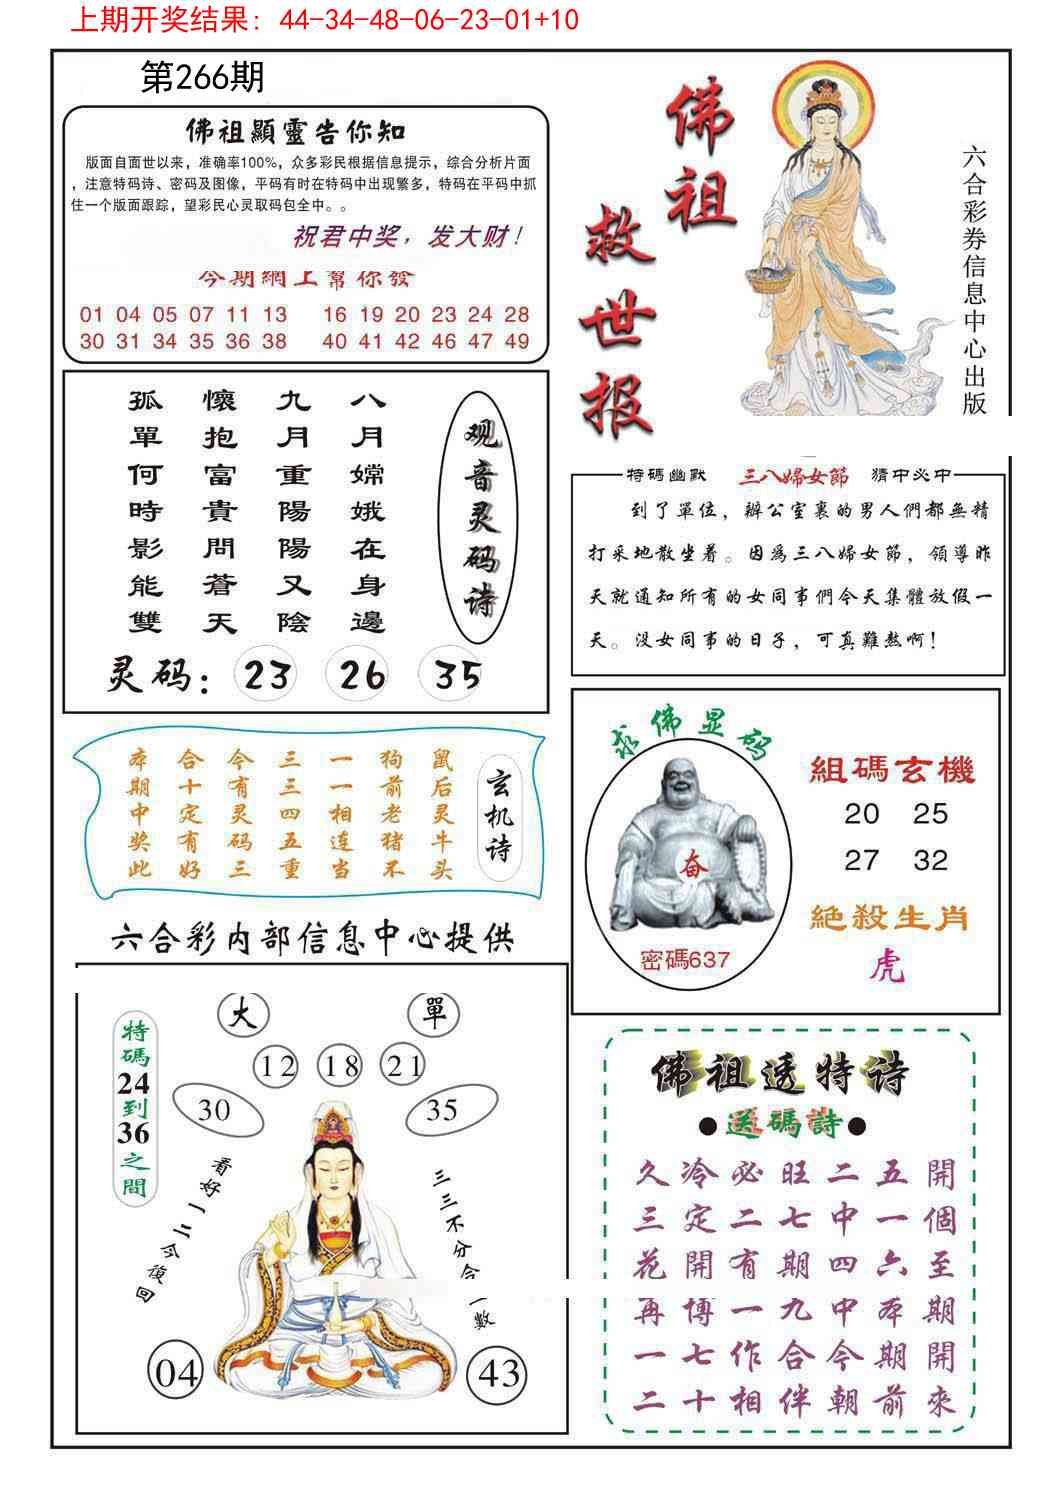 上期开奖结果：44-34-48-06-23-01+10
第266期
佛祖顯靈告你知
版面自面世以来，准确率100%，众多彩民根据信息提示，综合分析片面
，注意特码诗、密码及图像，平码有时在特码中出现繁多，特码在平码中抓
住一个版面跟踪，望彩民心灵取码包全中。。
祝君中奖，发大财！
今期網上幫你發
01 04 05 07 11 13 16 19 20 23 24 28
30 31 34 35 36 38 40 41 42 46 47 49
佛祖
救世报
六合彩券信息中心出版
观音灵码诗
八月嫦娥在身邊
九月重陽陽又陰
懷抱富貴問蒼天
孤單何時影能雙
灵码：23 26 35
特碼幽默 三八婦女節 猜中必中
到了單位，辦公室裏的男人們都無精
打采地散坐着。因爲三八婦女節，領導昨
天就通知所有的女同事們今天集體放假一
天。没女同事的日子，可真難熬啊！
玄机诗
鼠后灵牛头
狗前老猪不
一一相连当
三三四五重
今有灵码三
合十定有好
本期中奖此
求佛显码
奋
密碼637
組碼玄機
20 25
27 32
絕殺生肖
虎
六合彩内部信息中心提供
大 單
12 18 21
30 35
特碼24到36之間
看好一二今復回
三三不分合一數
04 43
佛祖透特诗
●送碼詩●
久冷必旺二五開
三定二七中一個
花開有期四六至
再博一九中本期
一七作合今期開
二十相伴朝前來